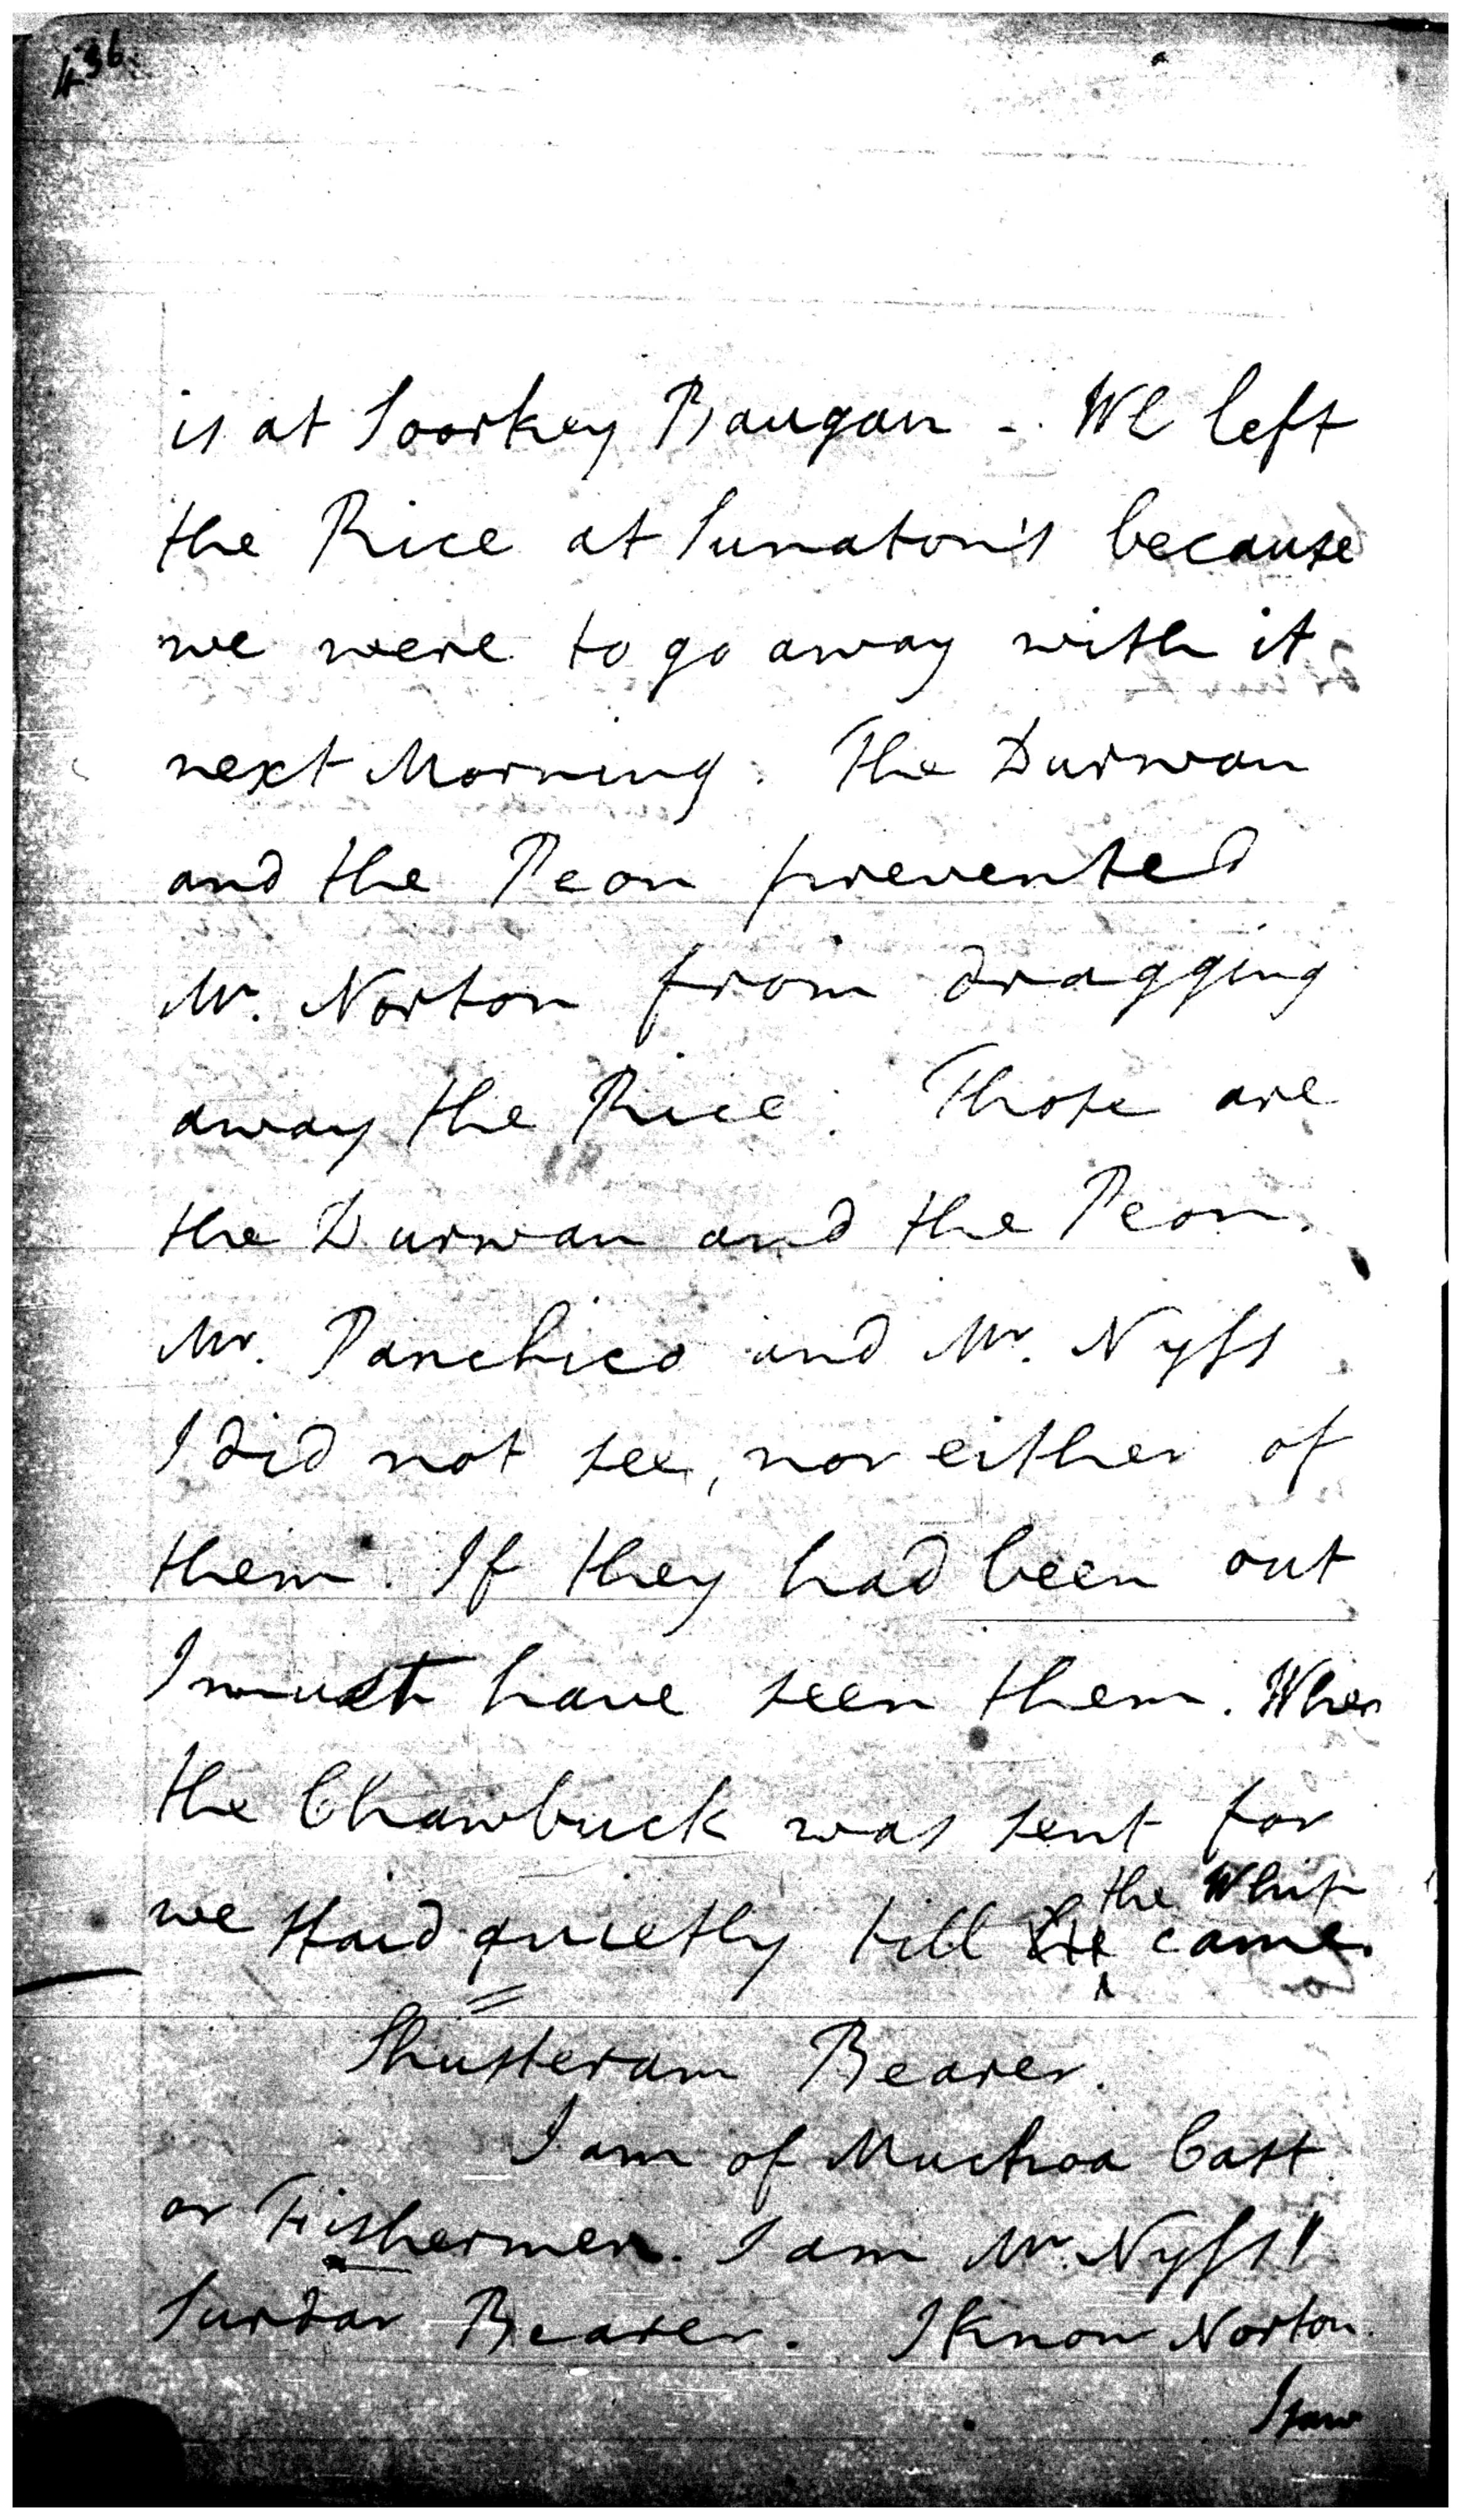 436.
is at Soorkey Baugan -. We left
the Rice at Sunaton's because
we were to go away with it
next Morning. The Durwan
and the Peon prevented
Mr. Norton from dragging
away the Rice. Those are
the Durwan and the Peon.
Mr. Panchico and Mr. Nyss
I did not see, nor either of
them. If they had been out
I must have seen them. When
the Chawbuck was sent for
the Whip
we staid quietly till came.
Shusteram Bearer.
I am of Muchoa Cast
or Fishermen. I am Mr. Nyss'
Surdar Bearer. I know Norton.
I saw